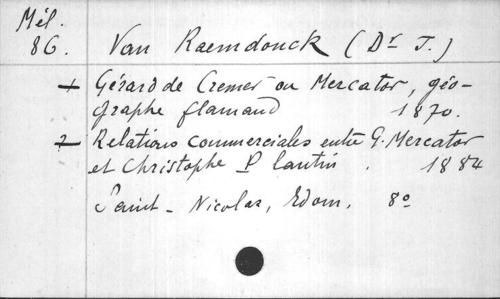 Mél.
86. Van Raemdonck (Dr J.)
1 Gérard de Cremer ou Mercator, géo-
graphe flamand 1870.
2 Relations commerciales entre G. Mercator
et Christophe Plantin. 1884
Saint-Nicolas, Edom, 8o